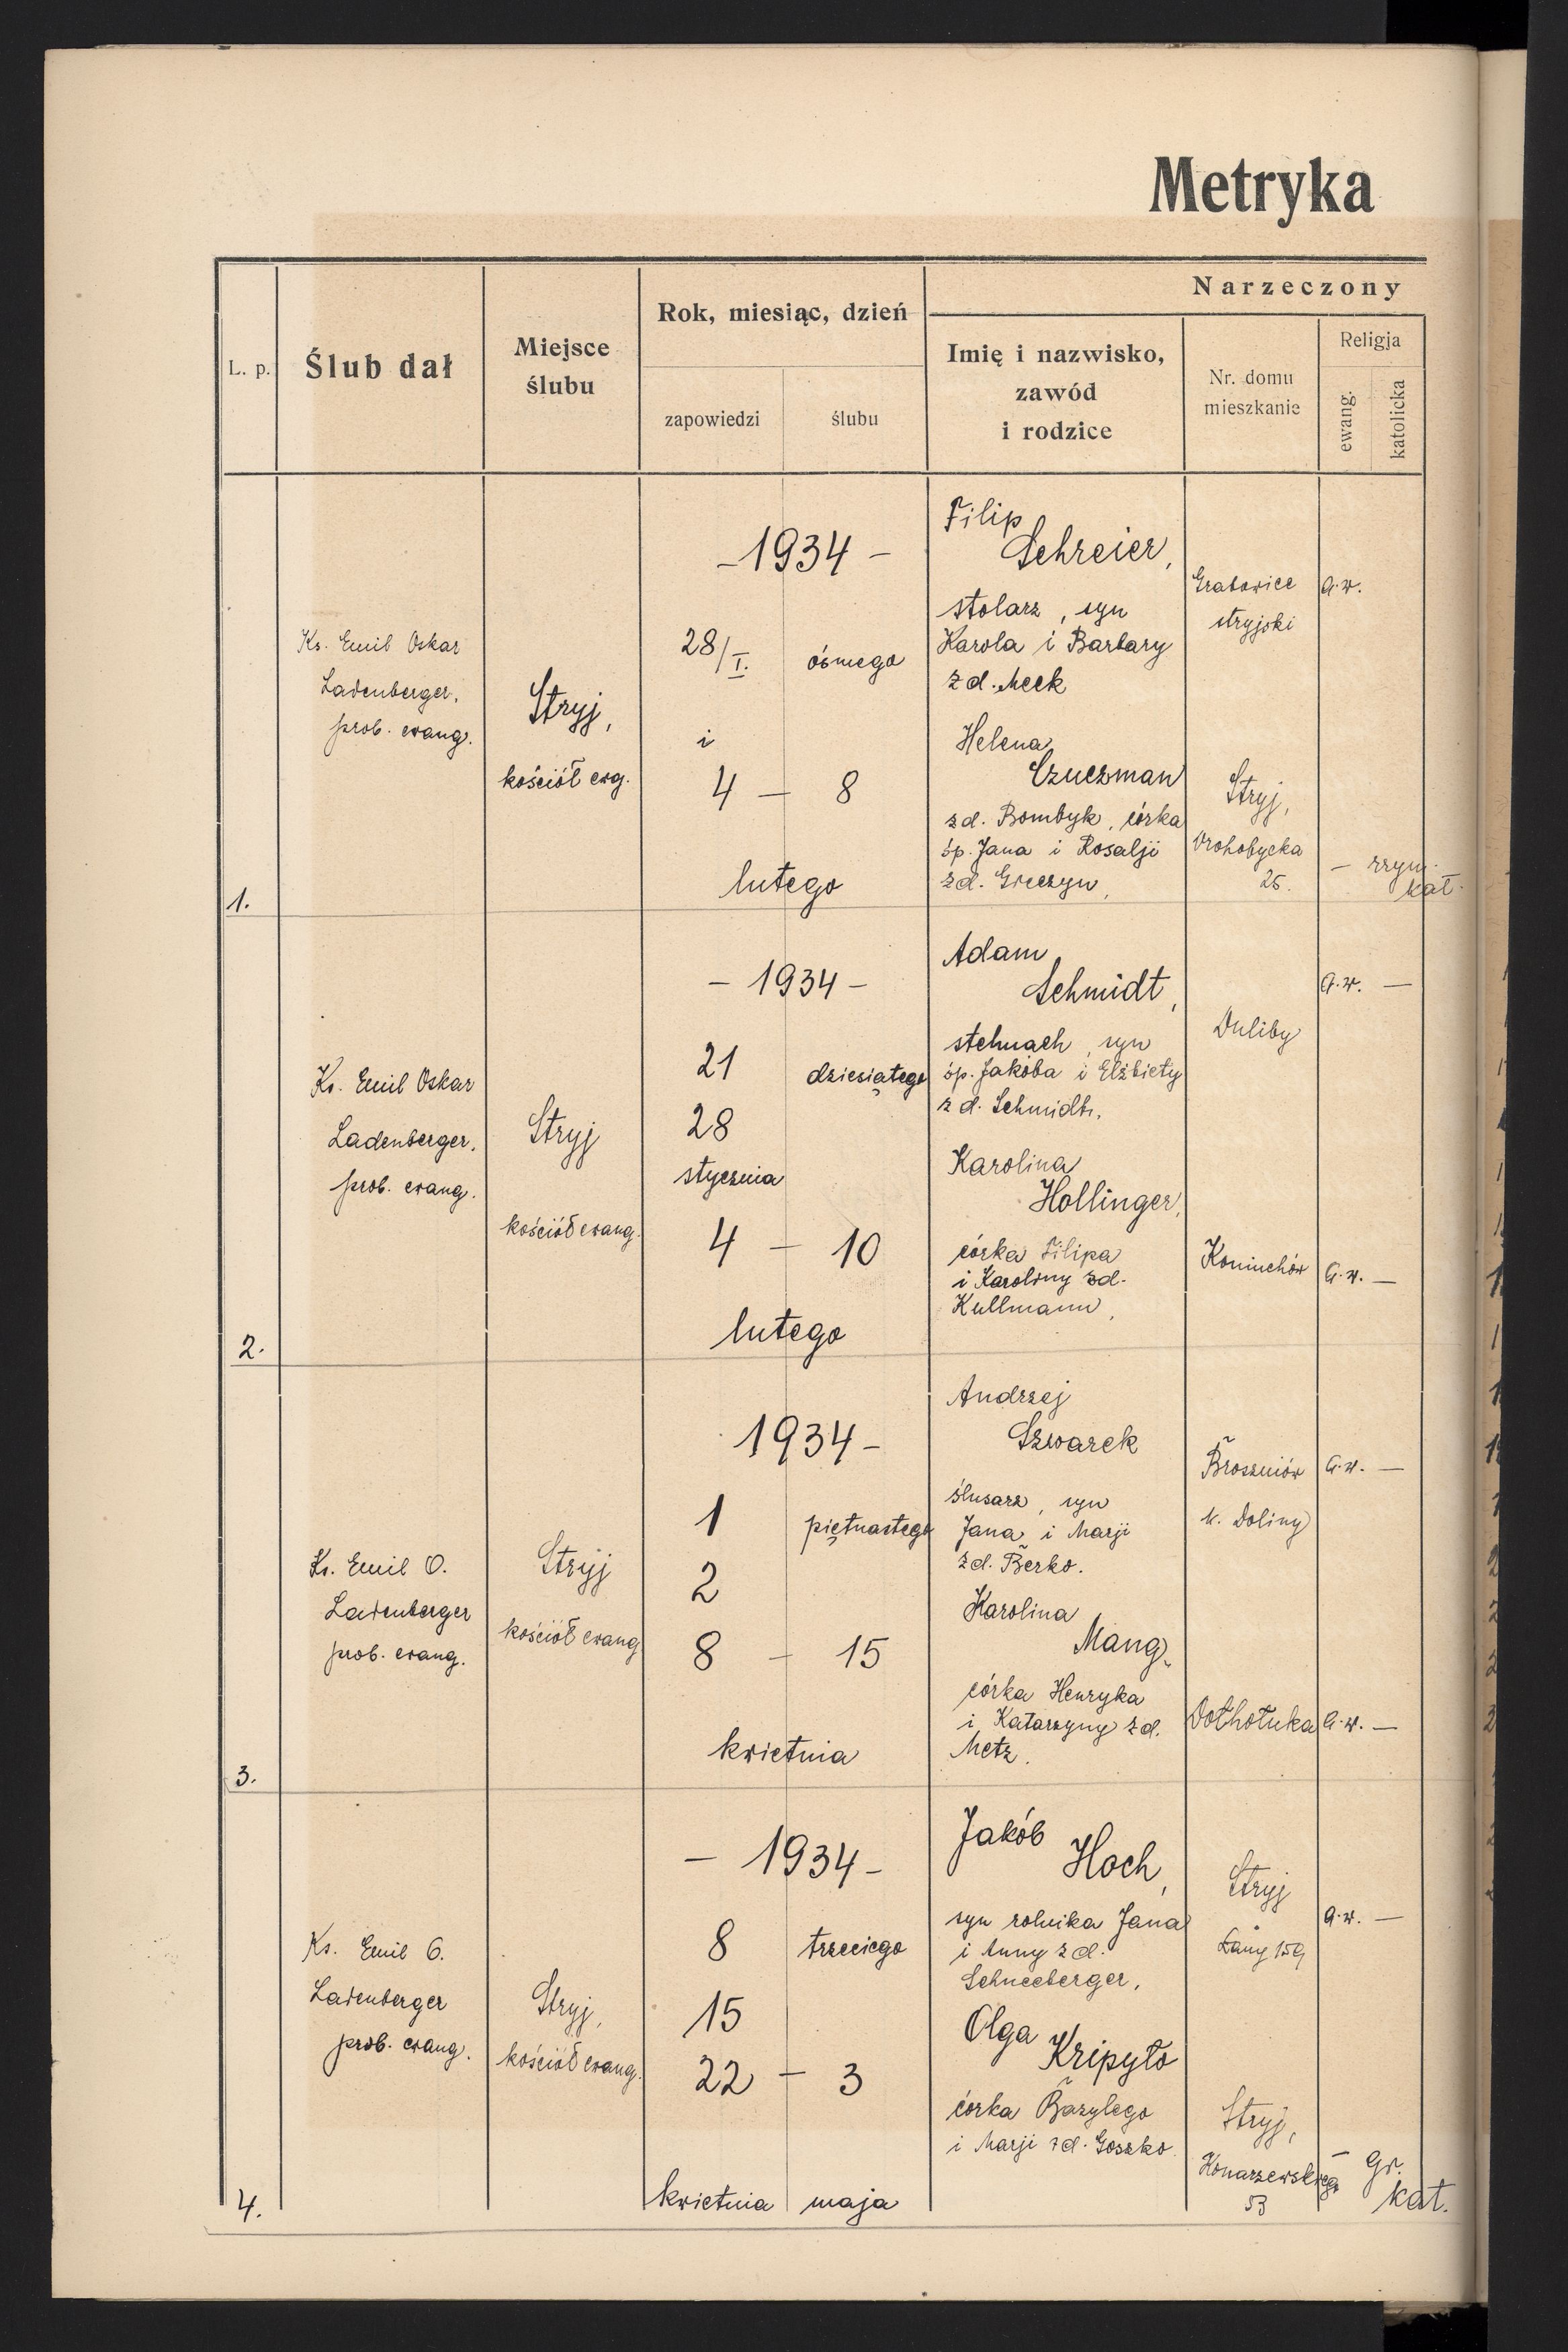 Metryka
L. p.
Ślub dał
Miejsce
ślubu
Rok, miesiąc, dzień
zapowiedzi
ślubu
Narzeczony
Imię i nazwisko,
zawód
i rodzice
Nr. domu
mieszkanie
Religja
ewang.
katolicka
1.
Ks. Emil Oskar
Ladenberger,
prob. ewang.
Stryj,
kościół ewg.
-1934-
28/I.
ósmego
i
4 — 8
lutego
Filip
Schreier,
stolarz, syn
Karola i Barbary
z d. Meck
Grabowice
stryjski
a.w.
Helena
Czuczman
zd. Bombyk, córka
śp. Jana i Rosalji
zd. Greczyn,
Stryj,
Drohobycka
25.
— rzym.
kat.
2.
Ks. Emil Oskar
Ladenberger,
prob. ewang.
Stryj
kościół ewang.
- 1934 -
21
dziesiątego
28
stycznia
4 — 10
lutego
Adam
Schmidt,
stelmach, syn
śp. Jakóba i Elżbiety
z d. Schmidt.
Duliby
a.w. —
Karolina
Hollinger,
córka Filipa
i Karoliny zd.
Kullmann,
Koniuchów
a.w. —
3.
Ks. Emil O.
Ladenberger
prob. ewang.
Stryj
kościół ewang
1934-
1
piętnastego
2
8 — 15
kwietnia
Andrzej
Szwarek
ślusarz, syn
Jana i Marji
zd. Berko.
Broszniów
k. Doliny
a.w. —
Karolina
Mang,
córka Henryka
i Katarzyny zd.
Metz.
a.w. —
4.
Ks. Emil O.
Ladenberger
prob. ewang.
Stryj,
kościół ewang.
- 1934 -
8
trzeciego
15
22 — 3
kwietnia
maja
Jakób
Hoch,
syn rolnika Jana
i Anny zd.
Schneeberger,
Stryj
Łany 159
a.w. —
Olga
Kripyto
córka Bazylego
i Marji zd. Goszko.
Stryj,
Konarzewskiego
53
— gr.
kat.